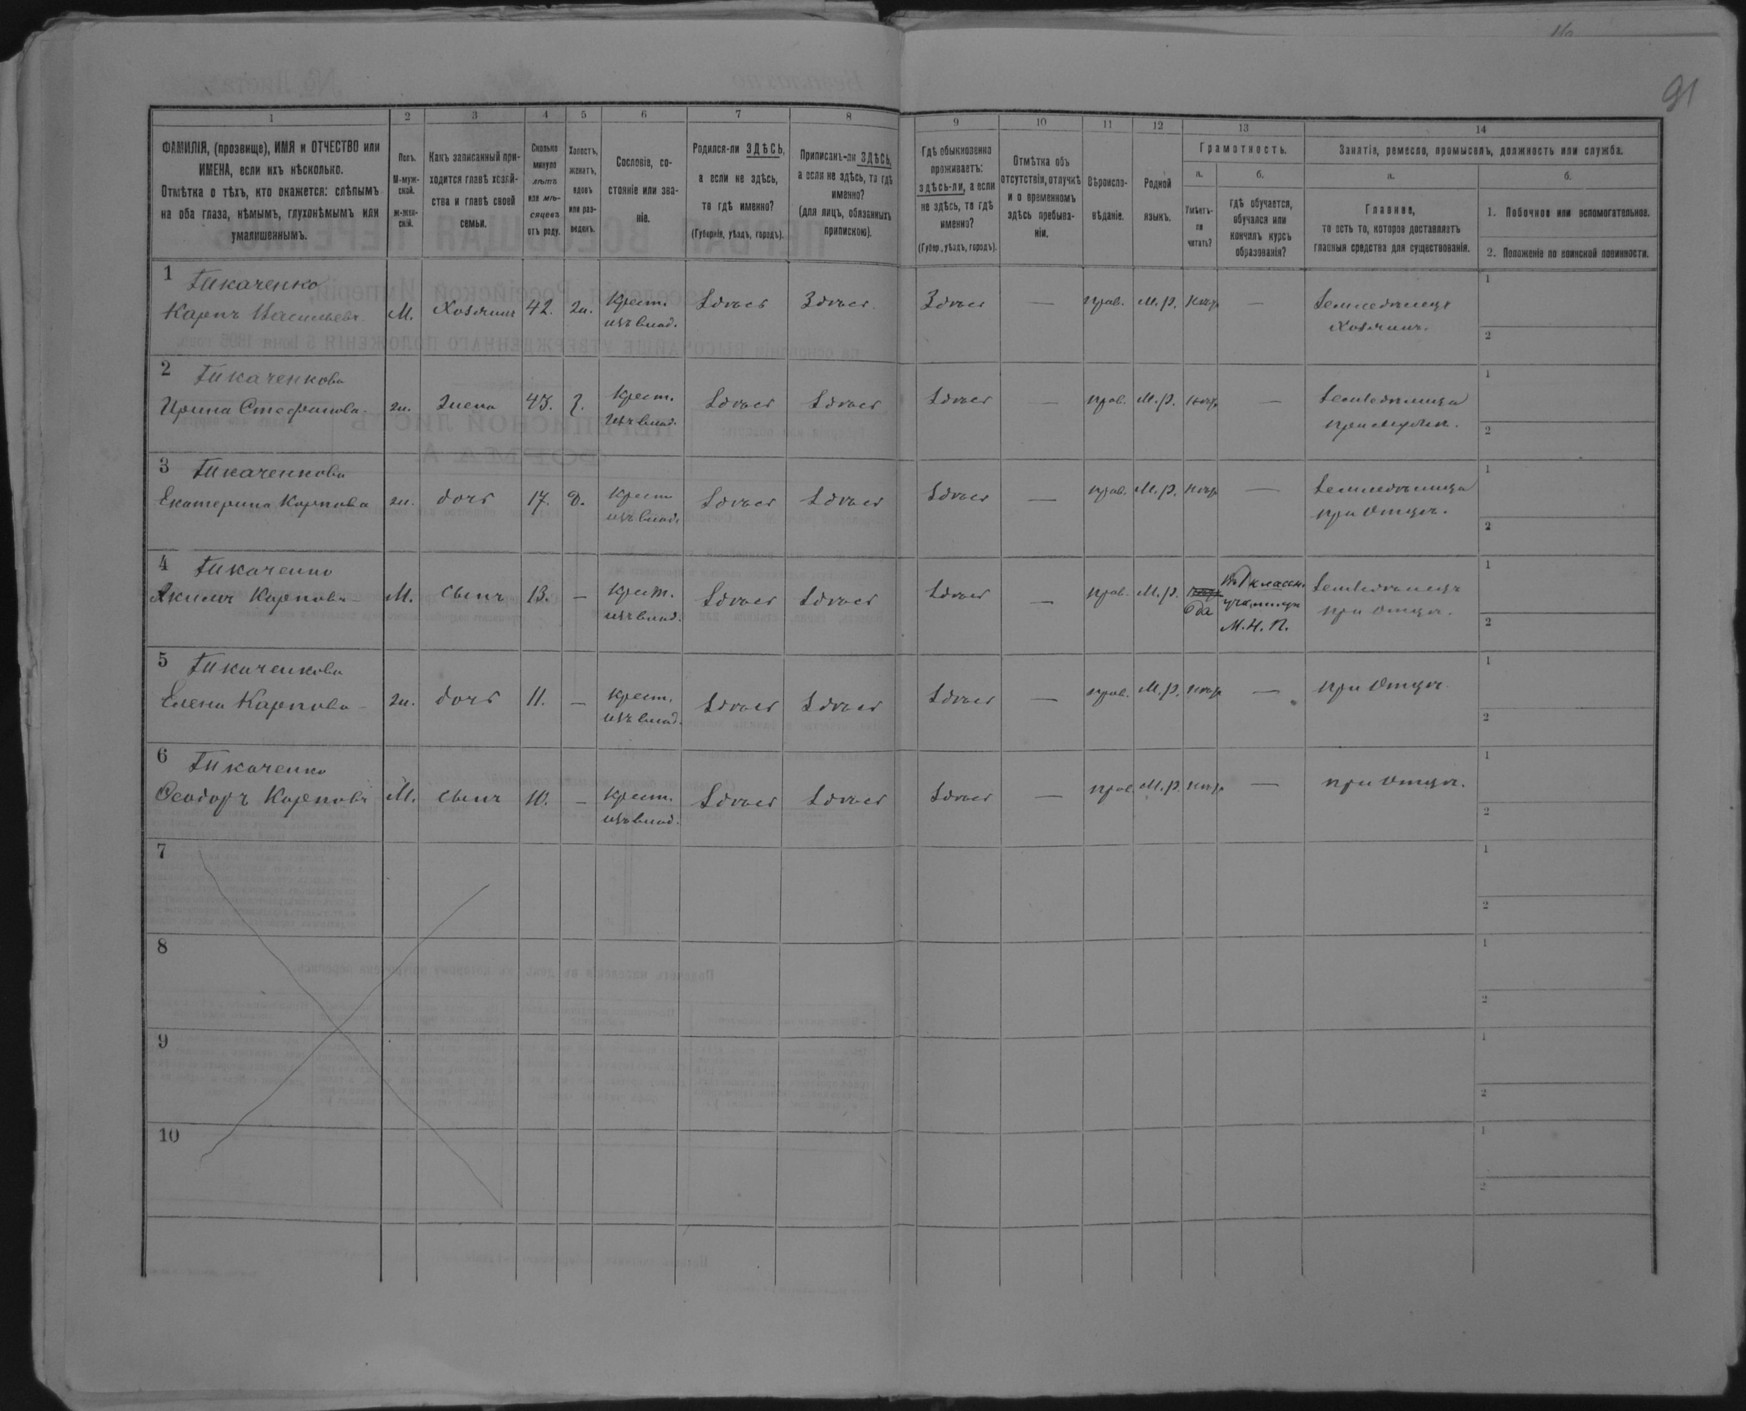 91
1 2 3 4 5 6 7 8 9 10 11 12 13 14
ФАМИЛІЯ, (прозвище), ИМЯ и ОТЧЕСТВО или
ИМЕНА, если ихъ нѣсколько.
Отмѣтка о тѣхъ, кто окажется: слѣпымъ
на оба глаза, нѣмымъ, глухонѣмымъ или
умалишеннымъ.
Полъ.
М-муж-
ской.
ж-жен-
скій.
Какъ записанный при-
ходится главѣ хозяй-
ства и главѣ своей
семьи.
Сколько
минуло
лѣтъ
или мѣ-
сяцевъ
отъ роду.
Холостъ,
женатъ,
вдовъ
или раз-
веденъ.
Сословіе, со-
стояніе или зва-
ніе.
Родился-ли ЗДѢСЬ,
а если не здѣсь,
то гдѣ именно?
(Губернія, уѣздъ, городъ).
Приписанъ-ли ЗДѢСЬ,
а если не здѣсь, то гдѣ
именно?
(для лицъ, обязанныхъ
припискою).
Гдѣ обыкновенно
проживаетъ:
здѣсь-ли, а если
не здѣсь, то гдѣ
именно?
(Губер., уѣздъ, городъ).
Отмѣтка объ
отсутствіи, отлучкѣ
и о временномъ
здѣсь пребыва-
ніи.
Вѣроиспо-
вѣданіе.
Родной
языкъ.
Грамотность.
а.
Умѣетъ-
ли
читать?
б.
гдѣ обучается,
обучался или
кончилъ курсъ
образованія?
Занятія, ремесло, промыселъ, должность или служба.
а.
Главное,
то есть то, которое доставляетъ
главныя средства для существованія.
б.
1. Побочное или вспомогательное.
2. Положеніе по воинской повинности.
1 Ткаченко
Карпъ М. Хозяинъ 42. ж. Крест. Здѣсь Здѣсь Здѣсь — прав. М.р. негр — Земледѣлецъ
изъ влад. Хозяинъ.
1
2
2 Ткаченкова
Ирина Стефанова ж. Жена 43. З. Крест. Здѣсь Здѣсь Здѣсь — прав. М.р. негр — Земледѣлица
изъ влад. при мужѣ.
1
2
3 Ткаченкова
Екатерина Карпова ж. дочь 17. д. Крест. Здѣсь Здѣсь Здѣсь — прав. М.р. негр — Земледѣлица
изъ влад. при Отцѣ.
1
2
4 Ткаченко
Карповъ М. Сынъ 13. — Крест. Здѣсь Здѣсь Здѣсь — прав. М.р. да училищѣ Земледѣлецъ
изъ влад. М.Н.П. при отцѣ.
1
2
5 Ткаченкова
Елена Карпова ж. дочь 11. — Крест. Здѣсь Здѣсь Здѣсь — прав. М.р. негр — при Отцѣ
изъ влад.
1
2
6 Ткаченко
Ѳеодоръ Карповъ М. Сынъ 10. — Крест. Здѣсь Здѣсь Здѣсь — прав. М.р. негр — при Отцѣ.
изъ влад.
1
2
7
1
2
8
1
2
9
1
2
10
1
2